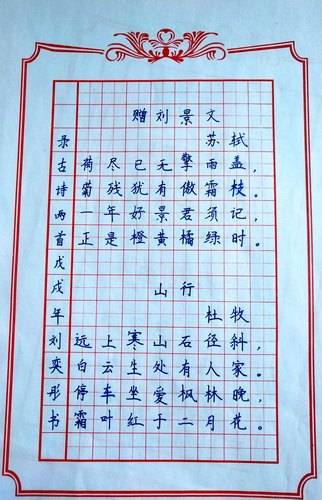 赠刘景文
苏轼
荷尽已无擎雨盖，
菊残犹有傲霜枝。
一年好景君须记，
正是橙黄橘绿时。
山行
杜牧
远上寒山石径斜，
白云生处有人家。
停车坐爱枫林晚，
霜叶红于二月花。
录古诗两首戊戌年刘奕彤书